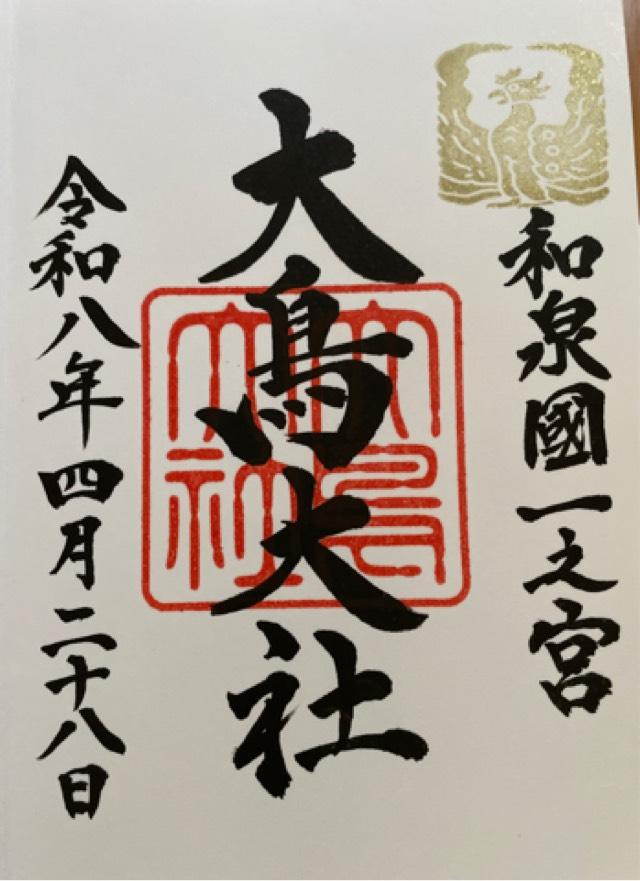 和泉國一之宮
大鳥大社
大鳥大社
令和八年四月二十八日